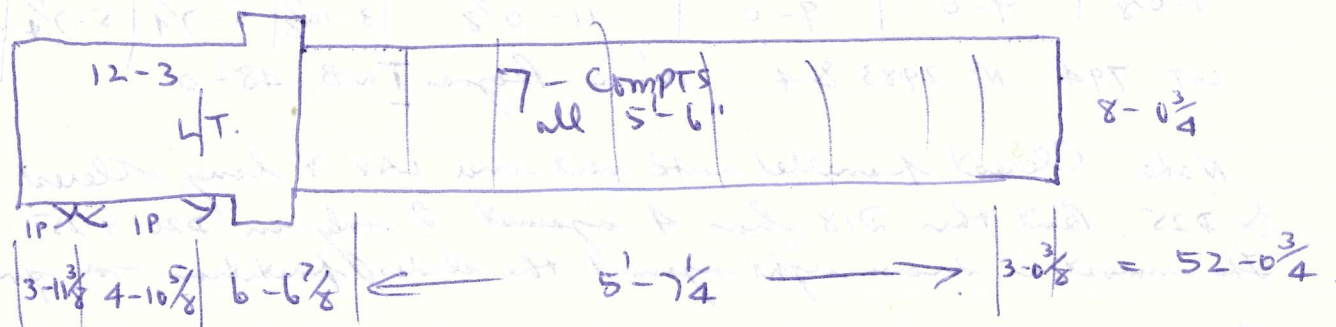 12-3
L/T.
7 - Compts
all 5'-6"
8 - 0 3/4
1P 1P
3-11 3/8 4-10 5/8 6-6 7/8 5'-7 1/4 3-0 3/8 = 52-0 3/4